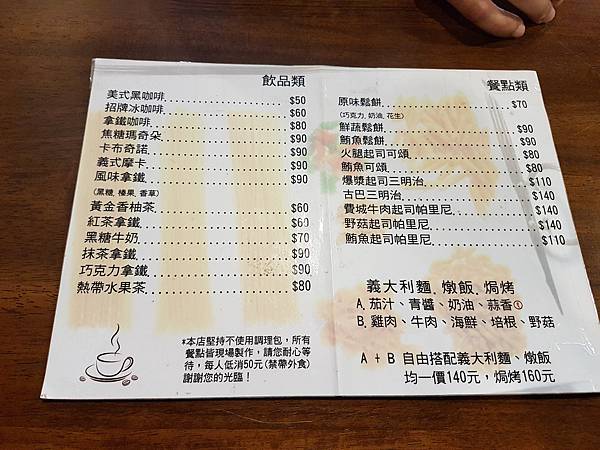 飲品類
美式黑咖啡 $50
招牌冰咖啡 $60
拿鐵咖啡 $80
焦糖瑪奇朵 $90
卡布奇諾 $90
義式摩卡 $90
風味拿鐵 $90
(黑糖、榛果、香草)
黃金香柚茶 $60
紅茶拿鐵 $60
黑糖牛奶 $70
抹茶拿鐵 $90
巧克力拿鐵 $90
熱帶水果茶 $80
*本店堅持不使用調理包，所有
餐點皆現場製作，請您耐心等
待，每人低消50元(禁帶外食)
謝謝您的光臨！
餐點類
原味鬆餅 $70
(巧克力、奶油、花生)
鮮蔬鬆餅 $90
鮪魚鬆餅 $90
火腿起司可頌 $80
鮪魚可頌 $80
爆漿起司三明治 $110
古巴三明治 $140
費城牛肉起司帕里尼 $140
野菇起司帕里尼 $140
鮪魚起司帕里尼 $110
義大利麵、燉飯、焗烤
A、茄汁、青醬、奶油、蒜香①
B、雞肉、牛肉、海鮮、培根、野菇
A + B 自由搭配義大利麵、燉飯
均一價140元，焗烤160元